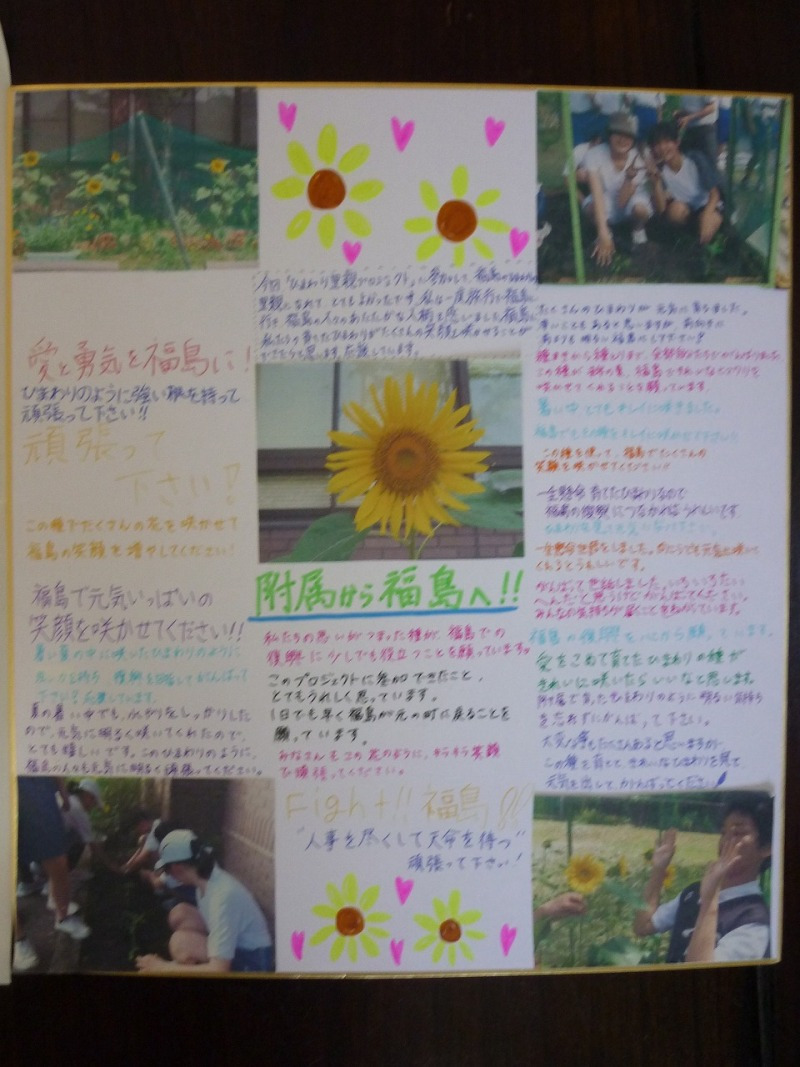 愛と勇気を福島に!
ひまわりのように強い根を持って
頑張って下さい!!
頑張って
下さい!
この種でたくさんの花を咲かせて
福島の笑顔を増やしてください!
福島で元気いっぱいの
笑顔を咲かせてください!!
暑い夏の中に咲いたひまわりのように
下さい!応援しています。
夏の暑い中でも、根がしっかりした
ので、元気に明るく咲いてくれたので、
とても嬉しいです。このひまわりのように、
福島の人々も元気に明るく頑張ってください。
今回「ひまわり里親プロジェクト」に参加して、福島の
里親になれてとてもよかったです。私は一度旅行で福島に
行き、福島の人々のあたたかな人柄を感じました。福島に
私たちの育てたひまわりがたくさんの笑顔を咲かせることが
できたらと思います。応援しています。
附属から福島へ!!
私たちの思いがつまった種が、福島での
復興に少しでも役立つことを願っています。
このプロジェクトに参加できたこと、
とてもうれしく思っています。
1日でも早く福島が元の町に戻ることを
願っています。
みなさんもこの花のように、キラキラ笑顔
で頑張ってください。
Fight!! 福島
"人事を尽くして天命を待つ"
頑張って下さい!
たくさんのひまわりが元気に育ちました。
辛いこともあると思いますが、前向きに
種まきから種とりまで、全部私たちでがんばりました。
この種が福島できれいな
咲かせてくれることを願っています。
暑い中とてもキレイに咲きました。
福島でもその種をキレイに咲かせて下さい!
この種を使って、福島でたくさんの
笑顔を咲かせてください!
一生懸命育てたひまわりなので
福島の復興につながればうれしいです
一生懸命世話をしました。元気に咲いて
くれるとうれしいです。
がんばって
がんばってください。
みんなの気持ちが届くことをねがっています。
福島の復興を心から願っています。
愛をこめて育てたひまわりの種が
きれいに咲いたらいいなと思います。
附属で育ったひまわりのように明るい気持ち
を忘れずにがんばって下さい。
大変な事もたくさんあると思いますが、
この種を育てて、きれいなひまわりを見て、
元気を出して、がんばってください!